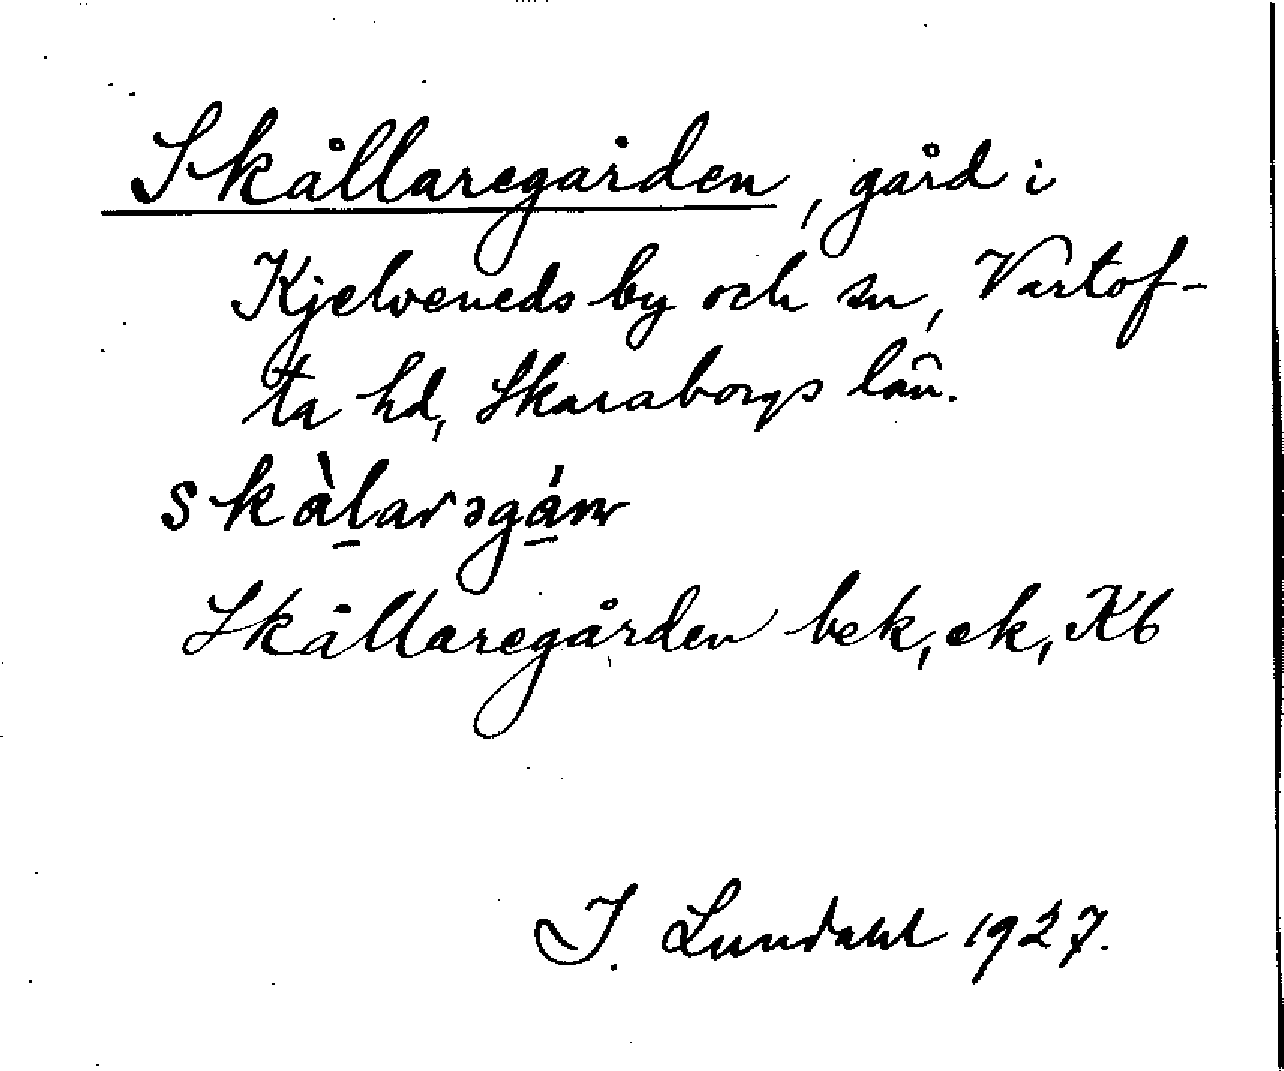 Skållaregården, gård i
Kjelveneds by och sn, Vartof-
ta hd, Skaraborgs län.
skàlarəgánν
Skållaregården bek, ek, Kb
I. Lundahl 1927.